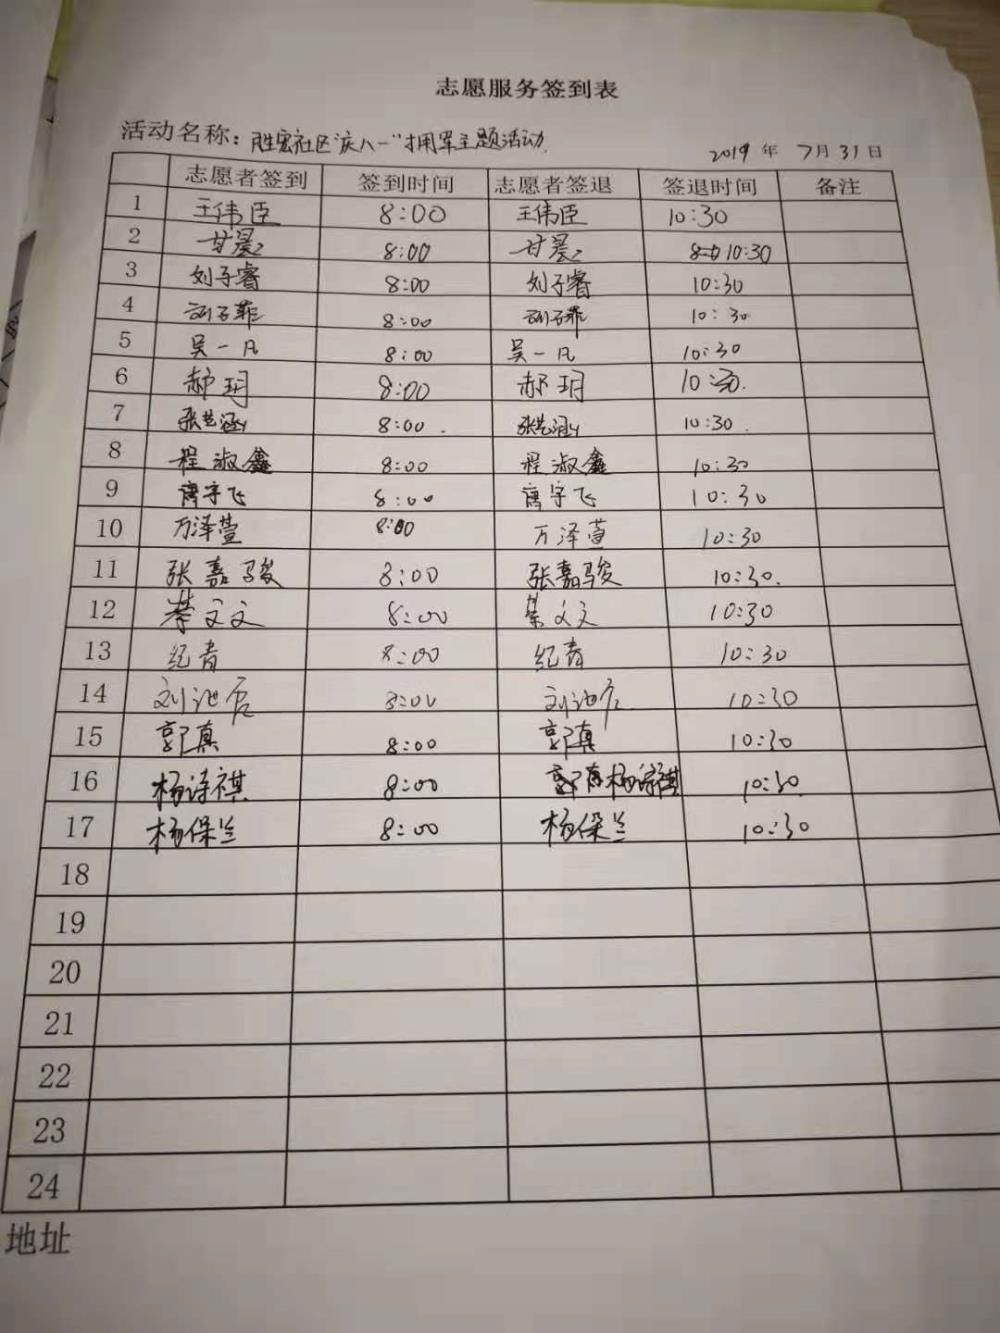 志愿服务签到表
活动名称：胜宏社区"庆八一"拥军主题活动
2019 年 7月 31 日
志愿者签到 签到时间 志愿者签退 签退时间 备注
1 王伟臣 8:00 王伟臣 10:30
2 甘晨 8:00 甘晨 10:30
3 刘子睿 8:00 刘子睿 10:30
4 刘子菲 8:00 刘子菲 10:30
5 吴一凡 8:00 吴一凡 10:30
6 郝玥 8:00 郝玥 10:30
7 张艺涵 8:00 张艺涵 10:30
8 程淑鑫 8:00 程淑鑫 10:30
9 唐宇飞 8:00 唐宇飞 10:30
10 万泽萱 8:00 万泽萱 10:30
11 张嘉骏 8:00 张嘉骏 10:30
12 文文 8:00 文文 10:30
13 纪青 8:00 纪青 10:30
14 刘池 8:00 刘池 10:30
15 郭真 8:00 郭真 10:30
16 杨诗祺 8:00 杨诗祺 10:30
17 杨保兰 8:00 杨保兰 10:30
18
19
20
21
22
23
24
地址